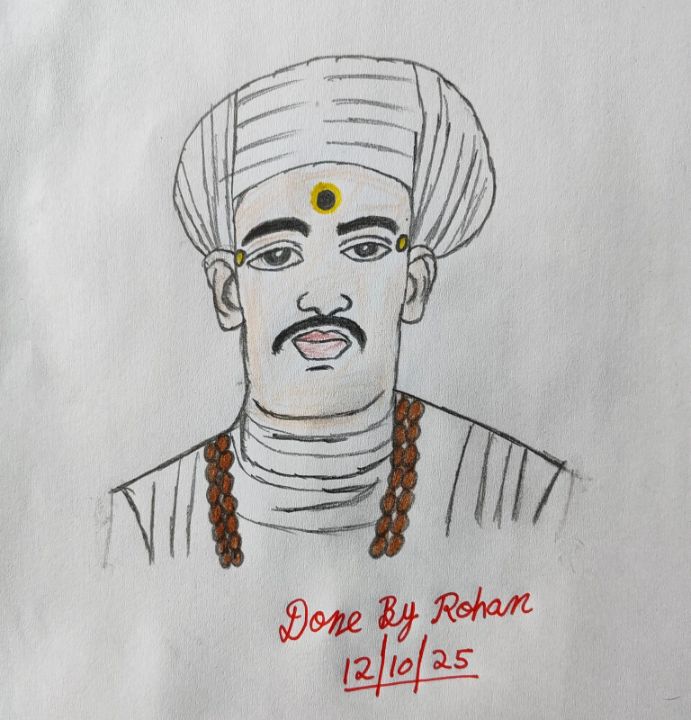 Done By Rohan
12/10/25